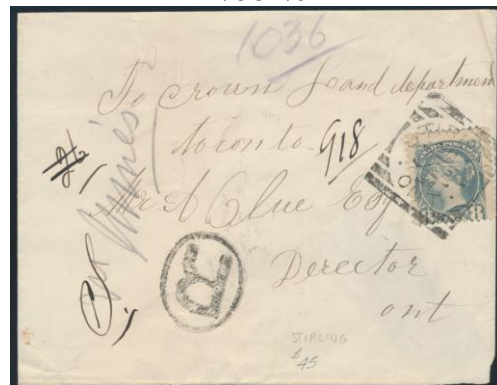 1036
To Crown Land department
toronto 918
Mr A Blue Esq
Derector
ont
R
STIRLING
$45